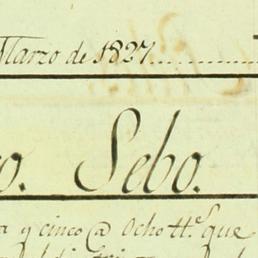 Marzo de 1827
o. Sebo.
a y cinco @ Ocho tt.s que